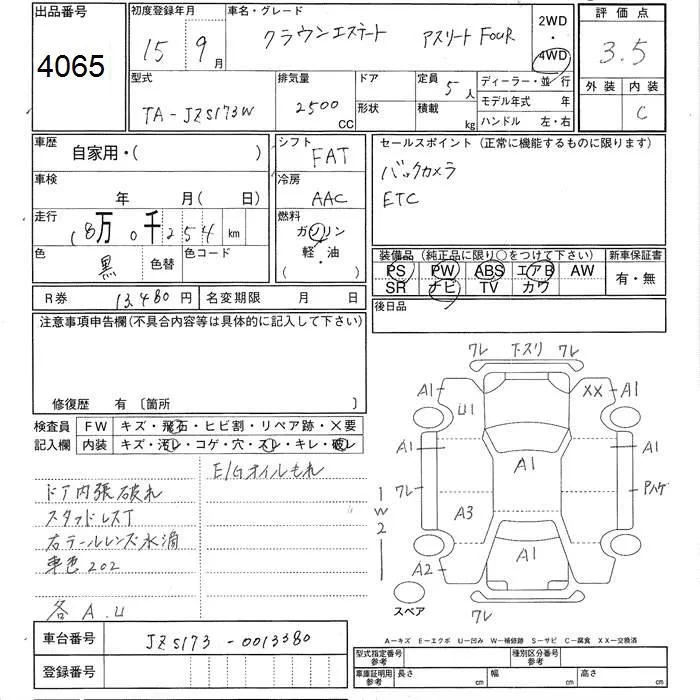 出品番号
4065
初度登録年月
15年 9月
車名・グレード
クラウンエステート アスリート FOUR
2WD
・
4WD
評価点
3.5
型式
TA-JZS173W
排気量
2500
CC
ドア
形状
定員
5人
積載
kg
ディーラー・並行
モデル年式 年
ハンドル 左・右
外装 内装
C
車歴
自家用・( )
シフト
FAT
セールスポイント(正常に機能するものに限ります)
バックカメラ
ETC
車検
年 月(日)
冷房
AAC
走行
18万0千254km
燃料
ガソリン
・
軽・油
( )
色
黒
色替
色コード
装備品(純正品に限り○をつけて下さい)
新車保証書
PS PW ABS エアB AW
SR ナビ TV カワ
有・無
R券 13,480円
名変期限 月 日
後日品
注意事項申告欄(不具合内容等は具体的に記入して下さい)
修復歴 有 〔箇所 〕
検査員
記入欄
FW キズ・飛石・ヒビ割・リペア跡・×要
内装 キズ・汚レ・コゲ・穴・スレ・キレ・破レ
E/Gオイルもれ
ドア内張破れ
スタッドレスT
右テールレンズ水滴
車色202
各A.U
ワレ 下スリ ワレ
A1 U1 XX A1
A1 A1 A1
ワレ Pハゲ
1
W
2
A3
A2 A1
スペア
ワレ
A-キズ E-エクボ U-凹み W-補修跡 S-サビ C-腐食 XX-交換済
車台番号 JZS173-0013380
登録番号
型式指定番号
参考
種別区分番号
参考
車庫証明用
参考
長さ cm 幅 cm 高さ cm